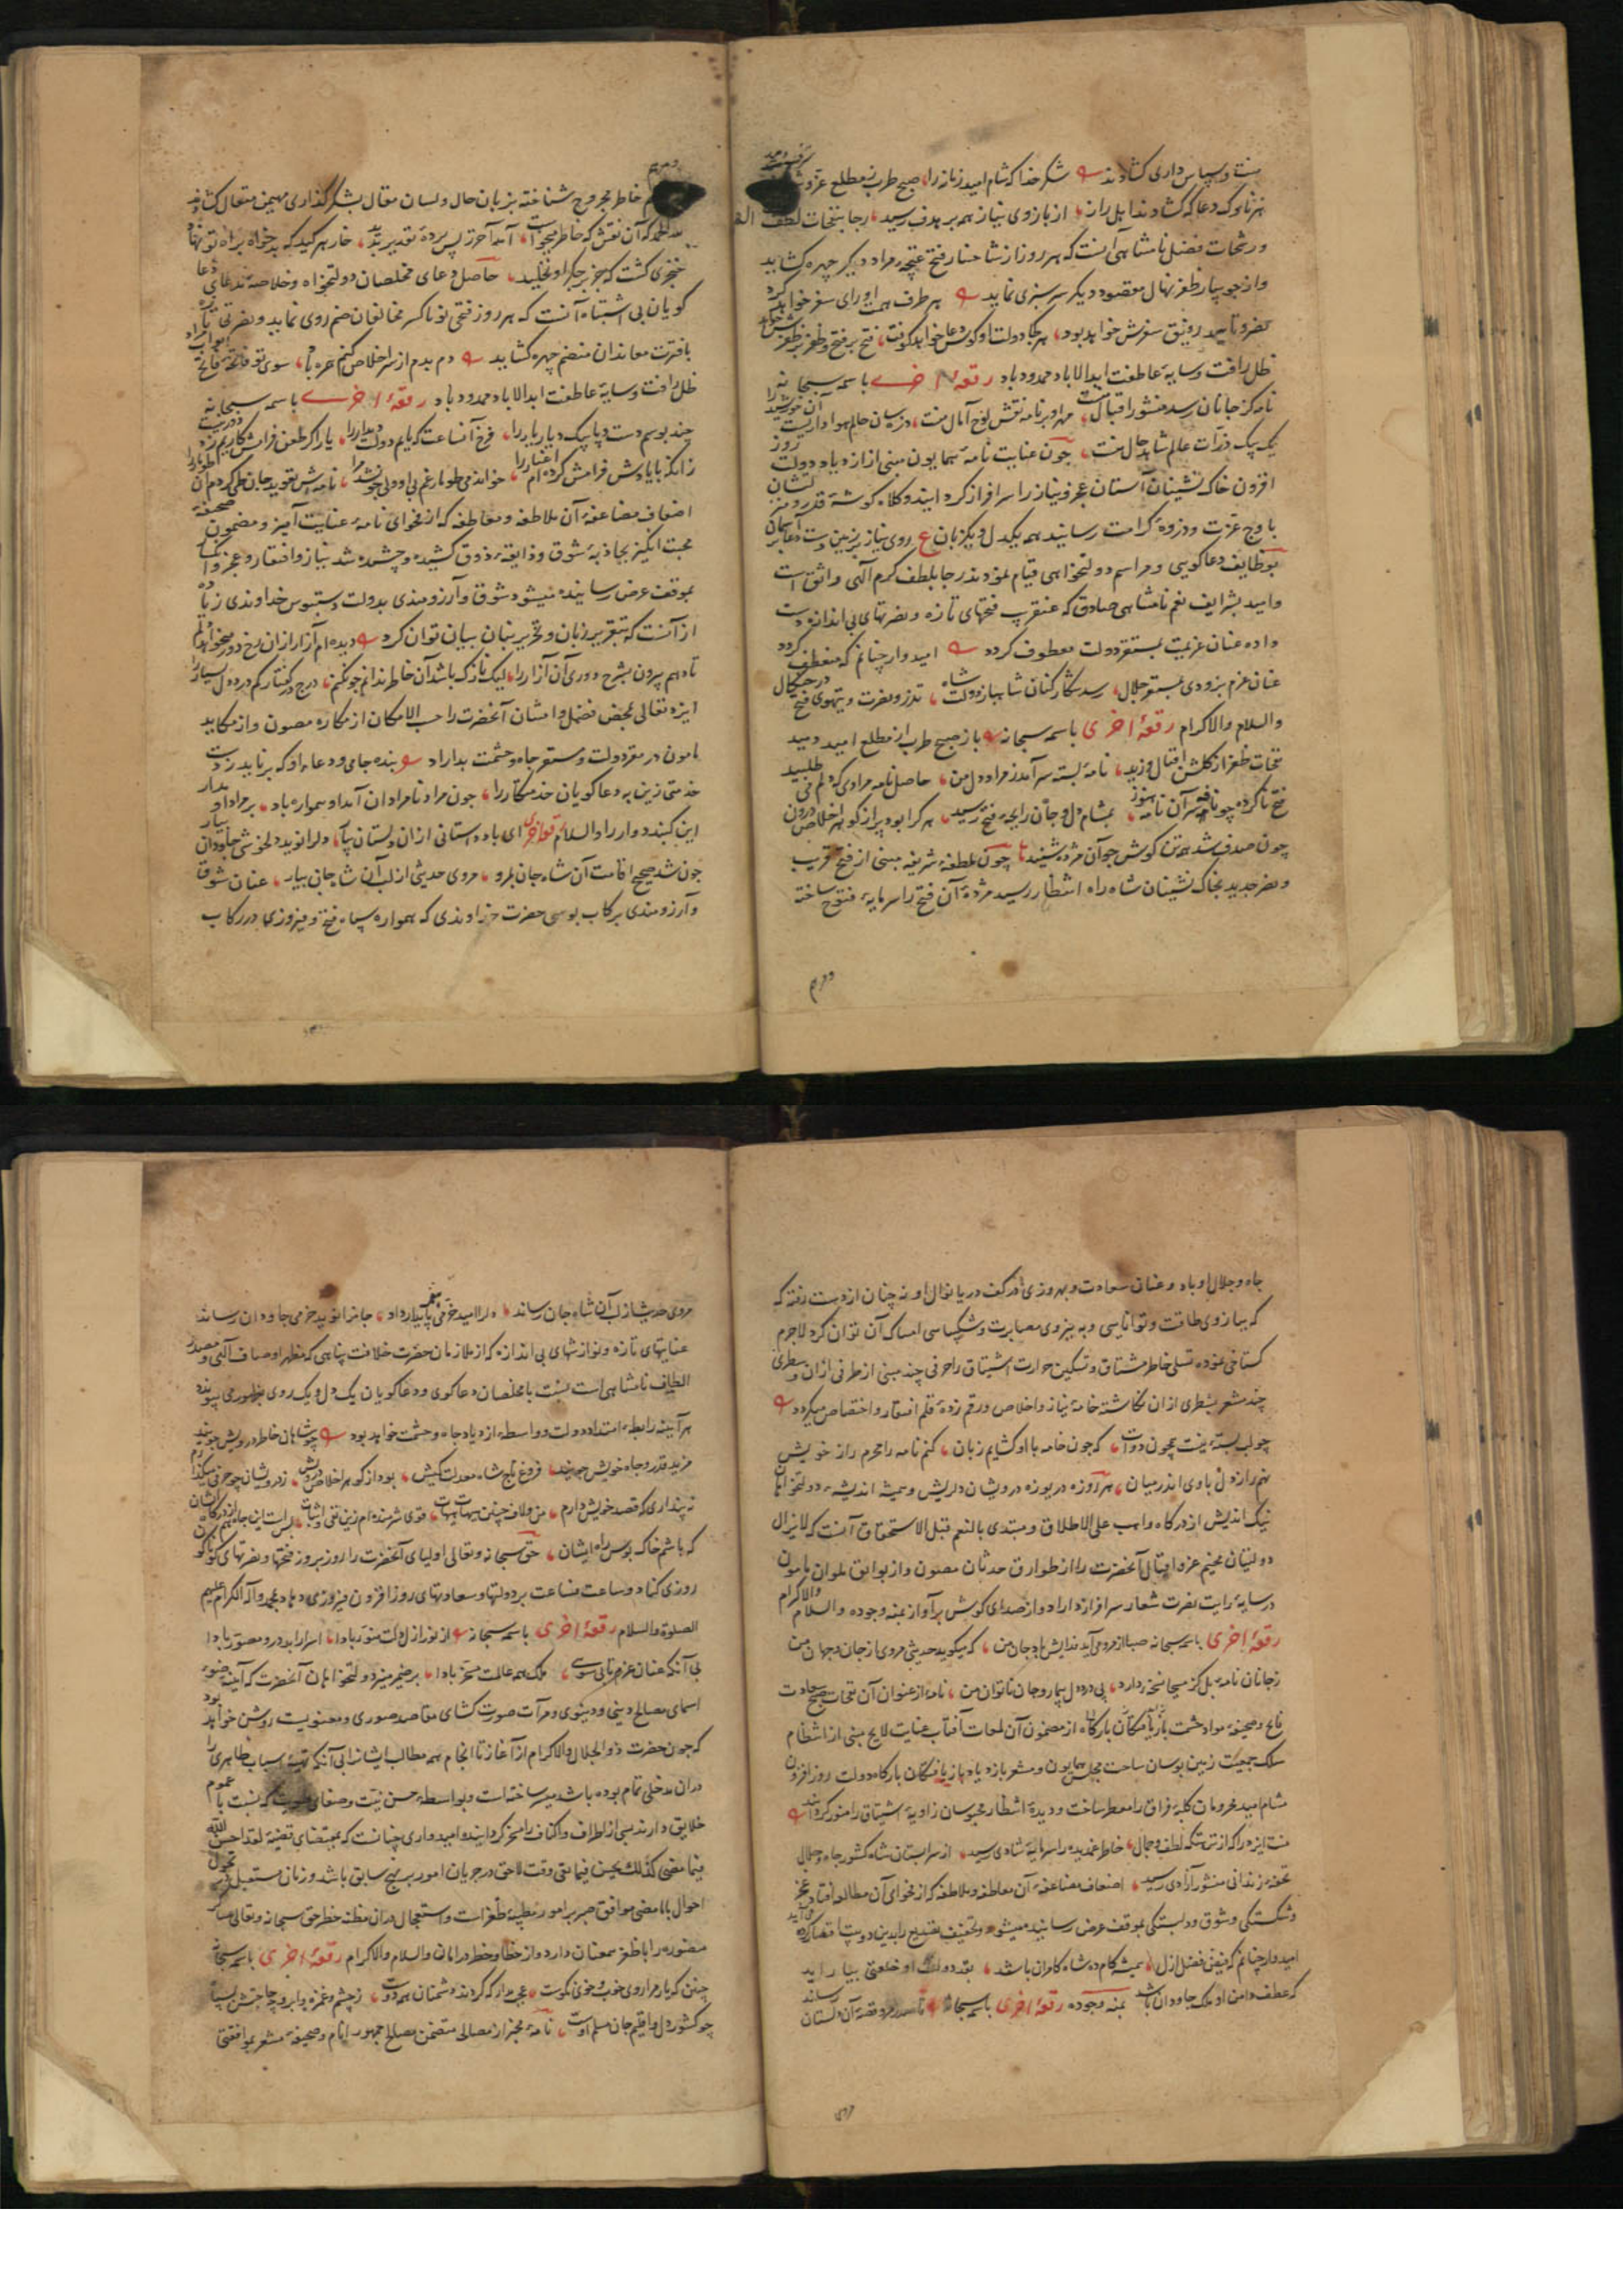 منت و سپاس داری کشادند شکر خدا که شام امید زمانه را صبح طرب ز مطلع عز و
هر ناوک دعا که کشادند اهل راز از بازوی نیاز همه بر هدف رسید رجا بنفحات لطف
و رشحات فضل نامتناهی آنست که هر روز از نشا خسار فتح غنچه مراد دیکر چهره کشاید
و از جویبار ظفر نهال مقصود دیکر سر سبزی نماید بهر طرف همت او رای سفر خواهد کرد
نصر و تایید رونق سفرش خواهد بود هر کجا دولت او کوس دعا خواهد کوفت فتح بر فتح و ظفر بر ظفرش خواهد
ظل رافت و سایه عاطفت ابد الاباد ممدود باد رقعهٔ اخری باسمه سبحانه
نامه کز جانان رسد منشور اقبال منست مهر او بر نامه نقش لوح آمال منست
یک بیک ذرات عالم شاهد حال منست چون عنایت نامهٔ همایون مبنی از ازدیاد دولت روز
افزون خاک نشینان آستان عجز و نیاز را سرافراز کردانید و کلاه کوشهٔ قدر و منزلتشان
باوج عزت و ذروهٔ کرامت رسانید همه یکدل و یکزبان ع روی نیاز بر زمین دست دعا بر آسمان
بوظایف دعا کویی و مراسم دولتخواهی قیام نمودند رجا بلطف کرم الهی واثق است
و امید بشرایف نعم نامتناهی صادق که عنقریب فتحهای تازه و نصرتهای بی اندازه دست
داده عنان عزیمت بمستقر دولت معطوف کردد امیدوار چنانم که منعطف کردد
عنان عزم بزودی بمستقر جلال رسد شکار کنان شاهباز دولت شاه تذرو نصرت و تیهوی فتح در چنکال
والسلام والاکرام رقعهٔ اخری باسمه سبحانه باز صبح طرب از مطلع امید دمید
نفحات ظفر از کلشن اقبال وزید نامهٔ بسته سر آمد ز مراد دل من حاصل نامه مرادی که دلم می طلبید
فتح ناکرده چو نافه سر آن نامه هنوز بمشام دل و جان رایحهٔ فتح رسید هر کرا بود پر از کوهر اخلاص درون
چون صدف شد همه تن کوش چو آن مژده شنید چون ملطفهٔ شریفه مبنی از فتح قریب
و نصر جدید بخاک نشینان شاه راه انتظار رسید مژدهٔ آن فتح را سرمایهٔ فتوح ساخته
و مرهم
خاطر مجروح شناخته بزبان حال و لسان مقال بشکر کذاری مهیمن متعال کشادند
لله الحمد که آن نقش که خاطر میخواست آمد آخر ز پس پردهٔ تقدیر پدید خار هر کید که بدخواه براه تو نهاد
خنجری کشت که جز بر جکر او نخلید حاصل دعای مخلصان دولتخواه و خلاصهٔ مدعای دعا
کویان بی اشتباه آنست که هر روز فتحی نو با کسر مخالفان ضم روی نماید و نصرتی تازه
با فترت معاندان منضم چهره کشاید دم بدم از سر اخلاص کنم همره باد سوی تو فاتحه فاتح ابواب مراد
ظل رافت و سایهٔ عاطفت ابد الاباد ممدود باد رقعهٔ اخری باسمه سبحانه
چند بوسم دست و پا پیک دیار یار را فرخ آنساعت که یابم دولت دیدار را
زانکه با یادش فرامش کرده ام اغیار را خواندمی طومار غم
اضعاف مضاعفهٔ آن ملاطفه و معاطفه که از فحوای نامهٔ عنایت آمیز و مضمون صحیفهٔ
محبت انکیز بجاذبهٔ شوق و ذایقهٔ ذوق کشیده و چشیده شد نیاز و افتقار و عجز و انکسار
بموقف عرض رسانیده میشود شوق و آرزومندی بدولت دستبوس خداوندی زیاده
از آنست که بتقریر زبان و تحریر بنان بیان توان کرد دیده ام آزار از ان رخ دور میخواهد دلم
تا دهم بیرون بشرح دوری آن آزار را لیک نازک باشد آن خاطر ندانم چون کنم درج در کفتار کم درد دل بسیار را
ایزد تعالی بمحض فضل و امتنان آنحضرت را حسب الامکان از مکاره مصون و از مکاید
مامون در مقر دولت و مستقر جاه و حشمت بداراد بنده جامی و دعاء او که بر ناید ز دست
خدمتی زین به دعا کویان خدمتکار را چون مراد نامرادان آمد او همواره باد بر مراد او مدار
این کنبد دوار را والسلام رقعهٔ اخری ای باد داستانی از ان دلستان بیار دلرا نوید دلخوشی جاودان بیار
چون شد صحیح اقامت آن شاه جان بمرو مروی حدیثی از لب آن شاه جان بیار عنان شوق
و آرزومندی برکاب بوسی حضرت خداوندی که همواره سپاه فتح و فیروزی در رکاب
جاه و جلال او باد و عنان سعادت و بهروزی در کف دریا نوال او نه چنان از دست رفته که
که ببازوی طاقت و توانایی و به نیروی مصابرت و شکیبایی امساک آن توان کرد لاجرم
کستاخی نموده تسلی خاطر مشتاق و تسکین حرارت اشتیاق را حرفی چند مبنی از طرفی از ان و سطری
چند مشعر بشطری از ان نکاشتهٔ خامهٔ نیاز و اخلاص و رقم زدهٔ قلم افتقار و اختصاص میکردد
چو لب بسته نیست همچون دوات که چون خامه با او کشایم زبان کنم نامه را محرم راز خویش
نهم راز دل با وی اندر میان هر روزه دریوزهٔ درویشان دلریش و همیشه اندیشهٔ دولتخواهان
نیک اندیش از درکاه واهب علی الاطلاق و مبتدی بالنعم قبل الاستحقاق آنست که لایزال
دولتیان مخیم عز و اقبال آنحضرت را از طوارق حدثان مصون و از بوایق ملوان مامون
در سایهٔ رایت نصرت شعار سرافراز داراد و از صدای کوس پر آواز بمنه وجوده والسلام والاکرام
رقعهٔ اخری باسمه سبحانه صبا از مرو می آید فدایش باد جان من که میکوید حدیثی مروی از جان و جهان من
ز جانان نامهٔ بل کز مسیحا نسخهٔ دارد پی درد دل بیمار و جان ناتوان من نامهٔ از عنوان آن نفحات صبح سعادت
فایح و صحیفهٔ مواد حشمت بازیافتکان بارکاه از مضمون آن لمعات آفتاب عنایت لایح مبنی از انتظام
سلک جمعیت زمین بوسان ساحت مجلس همایون و مشعر بازدیاد بازیافتکان بارکاه دولت روز افزون
مشام امید محرومان کلبهٔ فراق را معطر ساخت و دیدهٔ انتظار محبوسان زاویهٔ اشتیاق را منور کردانید
منت ایزد را که از نزهتکه لطف و جمال خاطر غمدیده را سرمایهٔ شادی رسید از سرابستان شاه کشور جاه و جلال
تحفهٔ بر زندانی منشور آزادی رسید اضعاف مضاعفهٔ آن معاطفه و ملاطفه که از فحوای آن مطالعه افتاد عجز
و شکستکی و شوق و دلبستکی بموقف عرض رسانیده میشود و تخفیف تصدیع را بدین دو بیت اقتصار کرده می آید
امیدوار چنانم که فیض فضل ازل همیشه کام ده شاه کامران باشد بقد دولت او خلعتی بیاراید
که عطف دامن او ملک جاودان باشد بمنه وجوده رقعهٔ اخری باسمه سبحانه
مروی حدیث از لب آن شاه جان رساند دلرا امید خرمی پایدار داد جانرا نوید خرمی جاودان رساند
عنایتهای تازه و نوازشهای بی اندازه که از ملازمان حضرت خلافت پناهی که مظهر اوصاف الهی و مصدر
الطاف نامتناهی است نسبت با مخلصان دعا کوی و دعا کویان یک دل و یک روی بظهور می پیوندد
هر آینه رابطهٔ امتداد دولت و واسطهٔ ازدیاد جاه و حشمت خواهد بود چو شاهان خاطر درویش جویند
مزید قدر و جاه خویش جویند فروغ تاج شاه معدلت کیش بود از کوهر اخلاص درویش ز درویشان چو حرفی میکذارم
نه پنداری که قصد خویش دارم من و لاف چنین هیهات هیهات قوی شرمنده ام زین نفی و اثبات
که باشم خاک بوس راه ایشان حق سبحانه و تعالی اولیای آنحضرت را روز بروز فتحها و نصرتهای کوناکون
روزی کناد و ساعت فساعت بر دولتها و سعادتهای روز افزون فیروزی دهاد بمحمد و آله الکرام علیهم
الصلوة والسلام رقعهٔ اخری باسمه سبحانه از نور ازل دلت منور بادا اسرار ابد درو مصور بادا
بی آنکه عنان عزم تابی سوی ملک همه عالمت مسخر بادا بر ضمیر منیر دولتخواهان آنحضرت که آینهٔ صور
اسمای مصالح دینی و دنیوی و مرآت صورت کشای مقاصد صوری و معنویست روشن خواهد بود
که چون حضرت ذوالجلال والاکرام از آغاز تا انجام همه مطالب ایشانرا بی آنکه تهیهٔ اسباب ظاهری را
دران مدخلی تمام بوده باشد میسر ساخته است و بواسطهٔ حسن نیت و صفای طویت که نسبت با عموم
خلایق دارند بسی از اطراف و اکناف را مسخر کردانیده امیدواری چنانست که بمقتضای قضیهٔ لقد احسن الله
فیما مضی کذلک یحسن فیما بقی وقت لاحق در جریان امور بر نهج سابق باشد و زمان مستقبل در تحول
احوال با ماضی موافق صبر بر امور مطیهٔ ظفر است و استعجال دران مظنه خطر حق سبحانه و تعالی عساکر
منصوره را با ظفر همعنان دارد و از خطا و خطر در امان والسلام والاکرام رقعهٔ اخری باسمه سبحانه
چنین که یار مرا روی خوب و خوی نکوست عجب مدار که کردند دشمنان همه دوست ز چشم و غمزه و ابرو چه حاجتش بسپاه
چو کشور دل و اقلیم جان مسلم اوست نامهٔ مخبر از مصالحی متضمن مصالح جمهور انام و صحیفهٔ مشعر بموافقتی